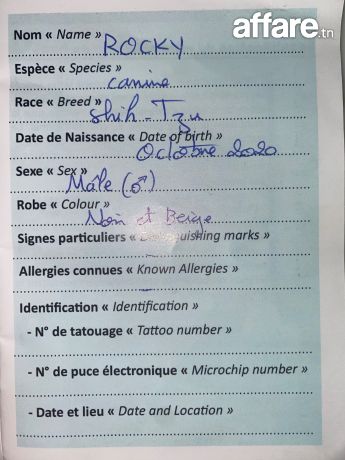 affare.tn
Nom « Name » ROCKY
Espèce « Species »
canine
Race « Breed »
Shih-Tzu
Date de Naissance « Date of birth »
Octobre 2020
Sexe « Sex »
Mâle (♂)
Robe « Colour »
Noir et Beige
Signes particuliers « Distinguishing marks »
Allergies connues « Known Allergies »
Identification « Identification »
- N° de tatouage « Tattoo number »
- N° de puce électronique « Microchip number »
- Date et lieu « Date and Location »